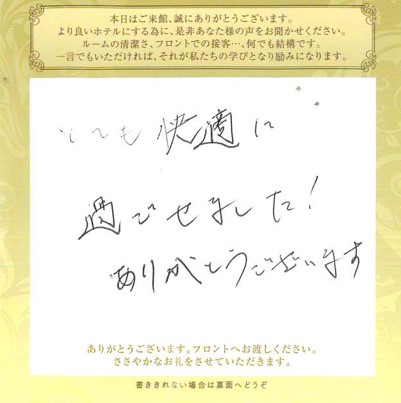 本日はご来館、誠にありがとうございます。
より良いホテルにする為に、是非あなた様の声をお聞かせください。
ルームの清潔さ、フロントでの接客…、何でも結構です。
一言でもいただければ、それが私たちの学びとなり励みになります。
とても快適に
過ごせました!
ありがとうございます
ありがとうございます。フロントへお渡しください。
ささやかなお礼をさせていただきます。
書ききれない場合は裏面へどうぞ